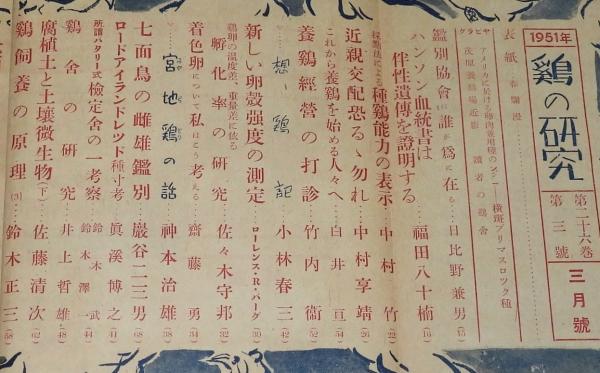 1951年
鷄の研究
第二十六卷
第三號
三月號
表紙 春爛漫
グラビヤ
アメリカに於ける卵肉兼用種のホシ――横斑プリマスロツク種
茨原養鷄場近影 讀者の鷄舍
鑑別協會は誰が爲に在る 日比野兼男 (15)
ハンソン血統書は伴性遺傳を證明する 福田八十楠 (16)
採點法による種鷄能力の表示 中村竹 (22)
近親交配恐るゝ勿れ 中村享靖 (26)
これから養鷄を始める人々へ 白井亘 (54)
養鷄經營の打診 竹内衞 (52)
想ひ鷄記 小林春三 (42)
新しい卵殼强度の測定 ローレンス・R・バーグ (39)
鷄卵の温度差、重量差に依る孵化率の硏究 佐々木守邦 (32)
着色卵について私はこう考える 齋藤勇 (34)
宮地鷄の話 神本治雄 (38)
七面鳥の雌雄鑑別 巖谷二三男 (68)
ロードアイランドレツド種寸考 眞溪博之 (41)
所謂バタリー式檢定舍の一考察 鈴木武 鈴木澤一 (44)
鷄舍の硏究 井上哲雄 (48)
腐植土と土壤微生物(下) 佐藤清次 (62)
鷄飼養の原理(3) 鈴木正三 (58)